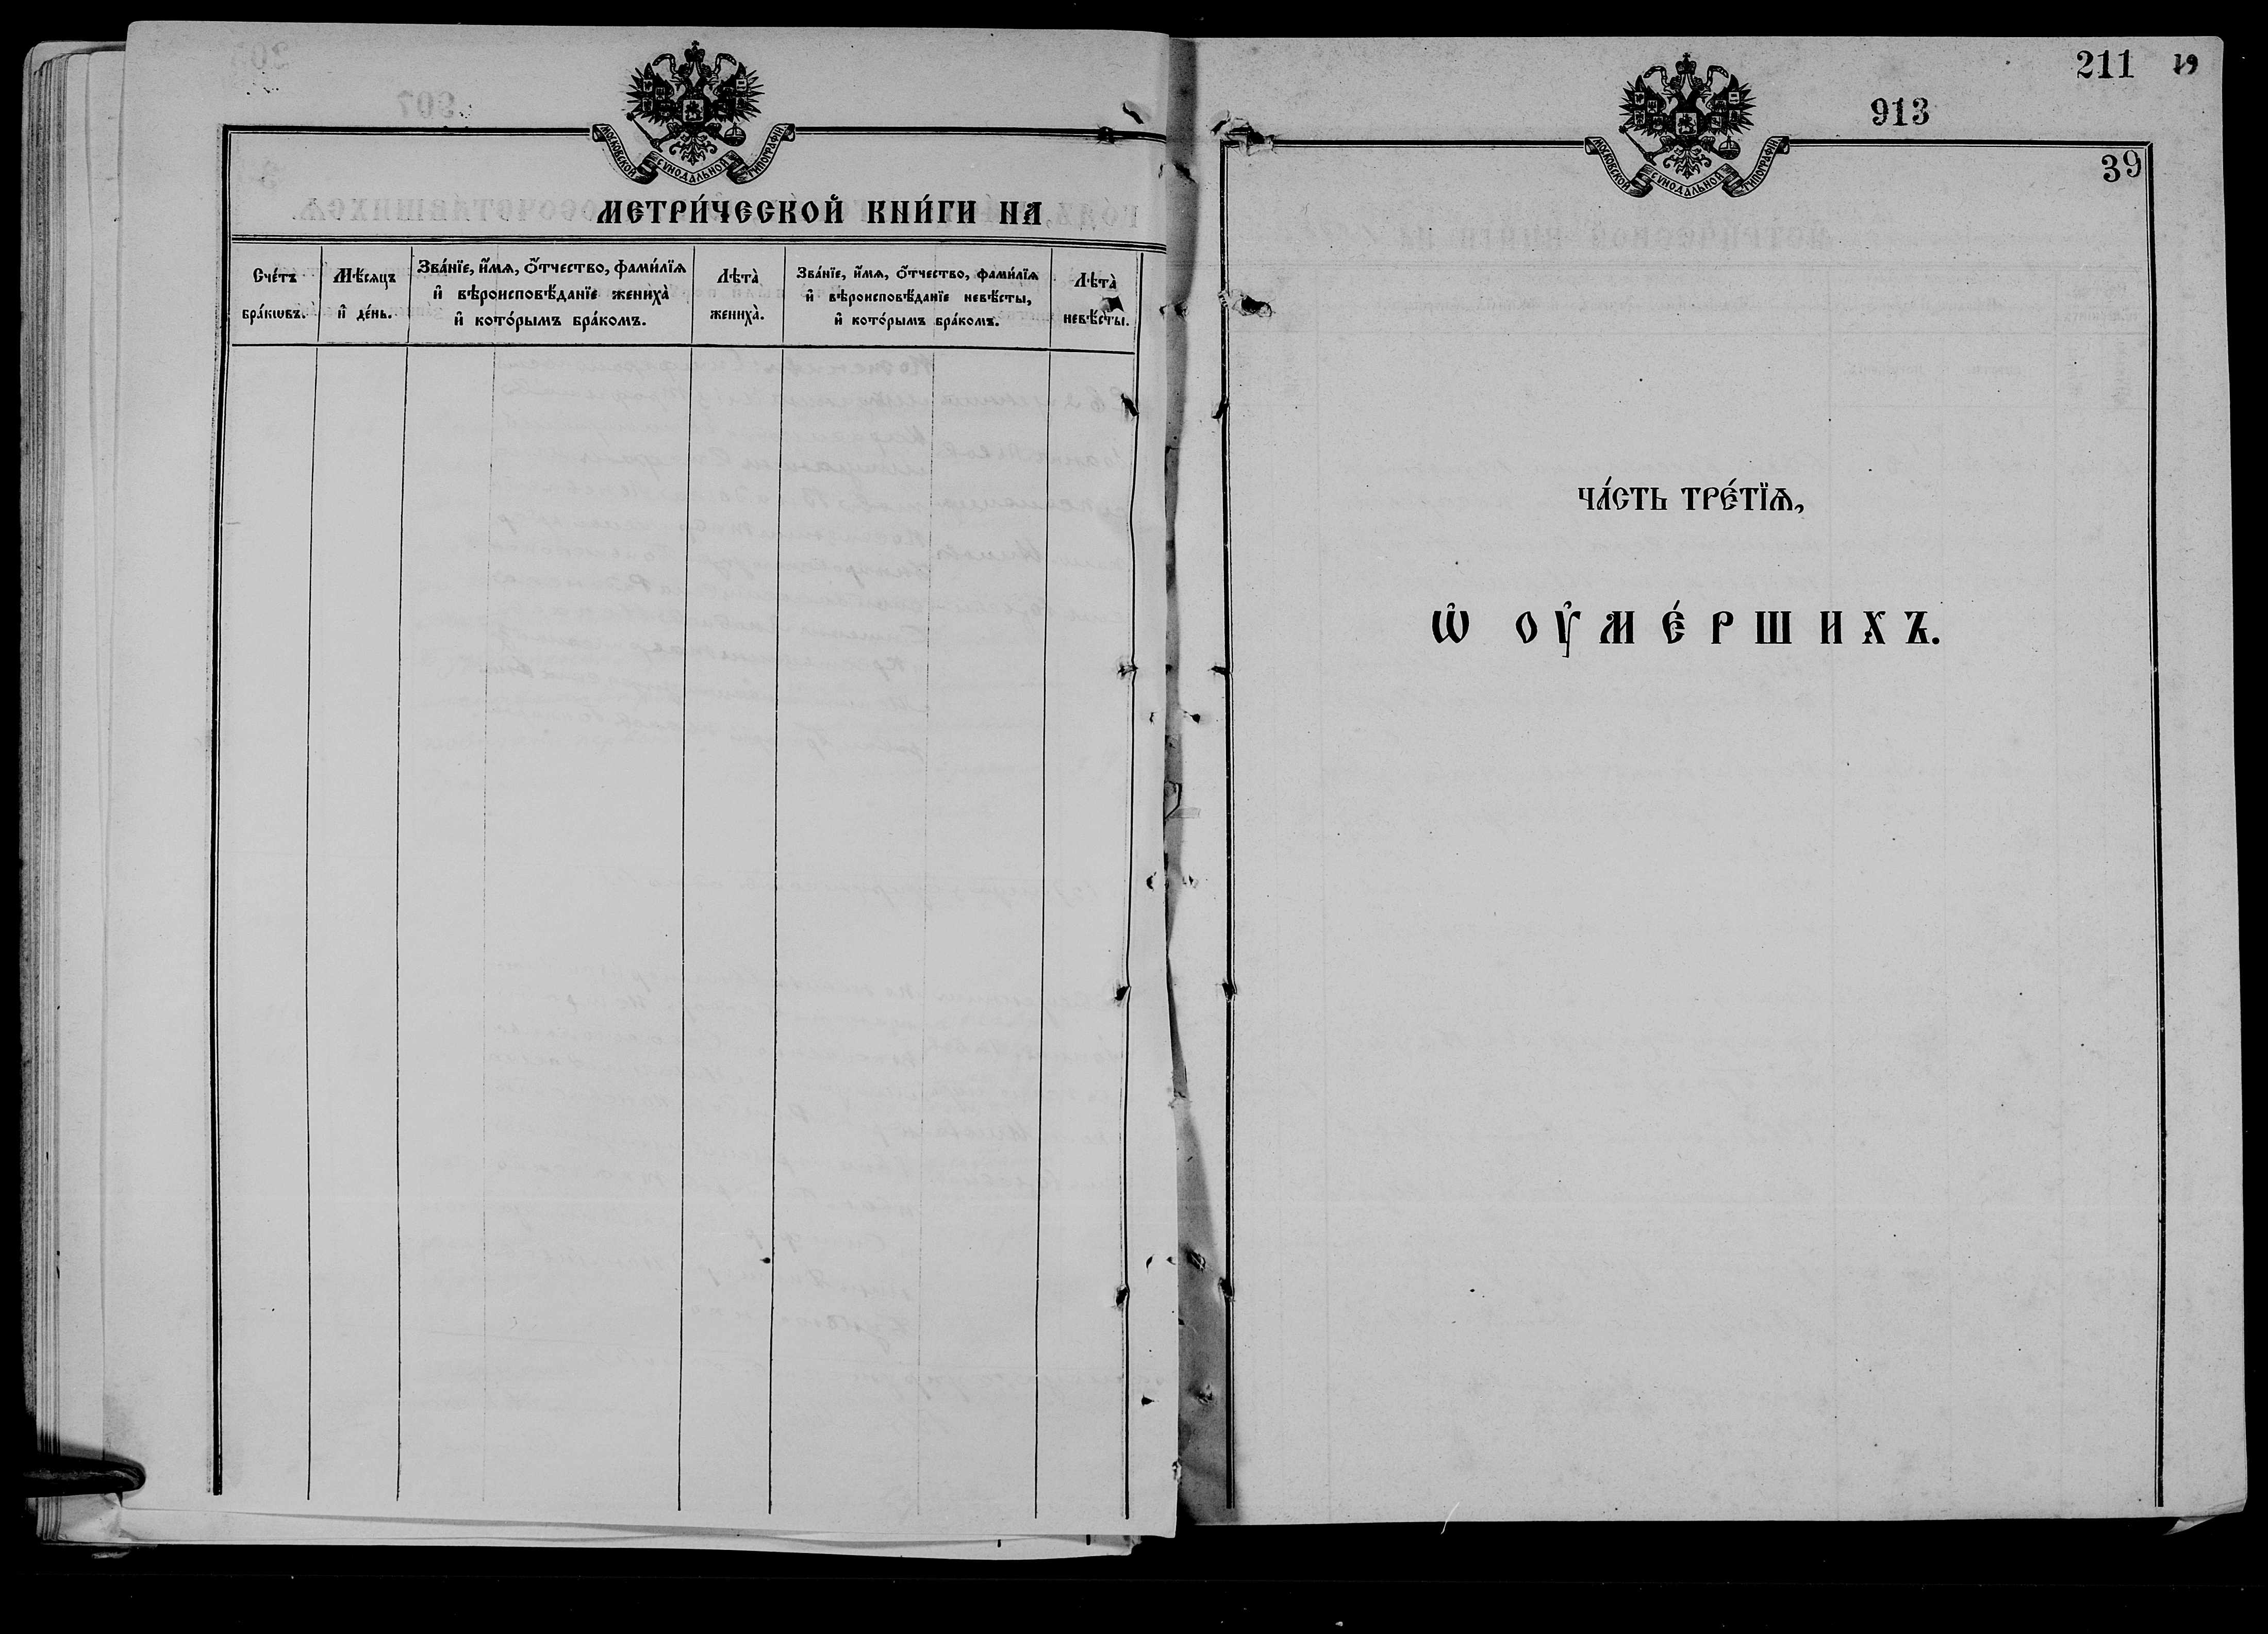 МОСКОВСКОЙ СѴНОДАЛЬНОЙ ТИПОГРАФІИ
МЕТРИ́ЧЕСКОЙ КНИ́ГИ НА
Сче́тъ бра́кѡвъ.
Мѣ́сяцъ и҆ де́нь.
Зва́нїе, и҆́мѧ, ѻ҆́тчество, фами́лїѧ
и҆ вѣроисповѣ́данїе жениха̀
и҆ кото́рымъ бра́комъ.
Лѣта̀ жениха̀.
Зва́нїе, и҆́мѧ, ѻ҆́тчество, фами́лїѧ
и҆ вѣроисповѣ́данїе невѣ́сты,
и҆ кото́рымъ бра́комъ.
Лѣта̀ невѣ́сты.
211
913
39
МОСКОВСКОЙ СѴНОДАЛЬНОЙ ТИПОГРАФІИ
ЧА́СТЬ ТРЕ́ТЇѦ,
Ѡ҆ ОУ҆МЕ́РШИХЪ.